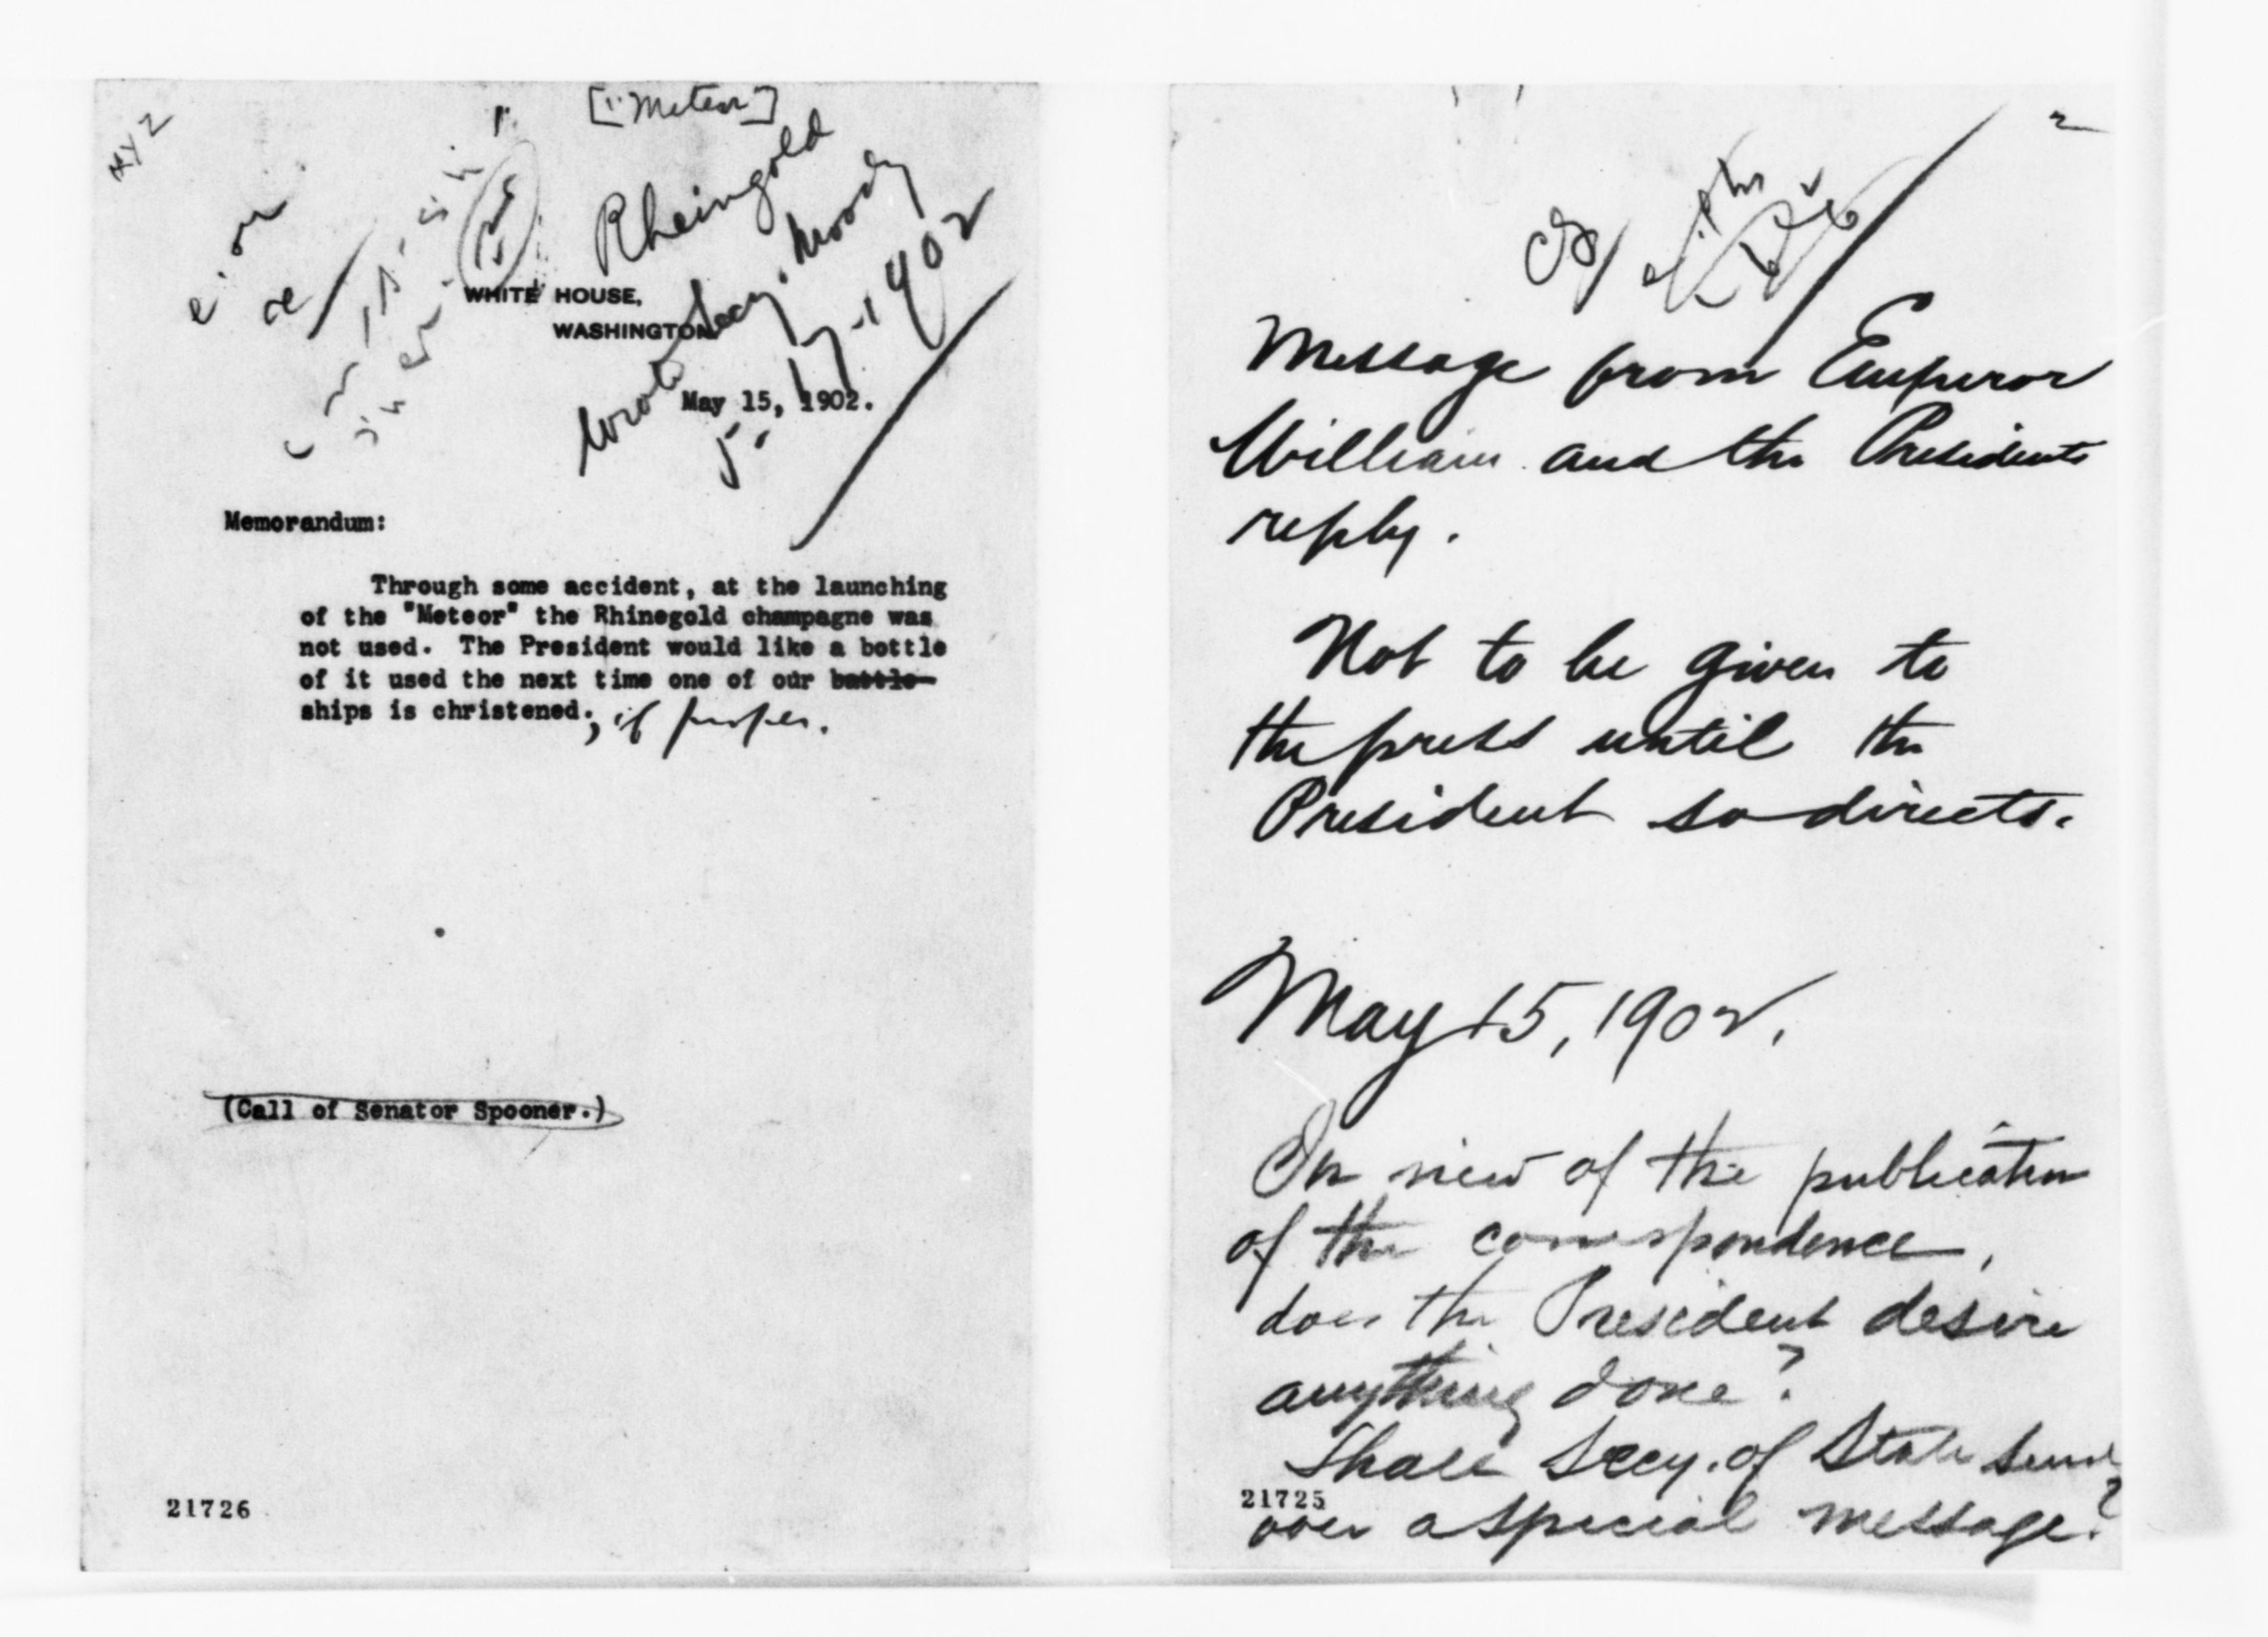 ["Meteor"]
Rheingold
Wrote Secy. Moody
5-17-1902
WHITE HOUSE,
WASHINGTON
May 15, 1902.
Memorandum:
Through some accident, at the launching
of the "Meteor" the Rhinegold champagne was
not used. The President would like a bottle
of it used the next time one of our battle-
ships is christened, if proper.
(Call of Senator Spooner.)
21726
2
Message from Emperor
William and the Presidents
reply.
Not to be given to
the press until the
President so directs.
May 15, 1902.
In view of the publication
of the correspondence,
does the President desire
anything done?
Shall Secy. of State send
21725
over a special message?